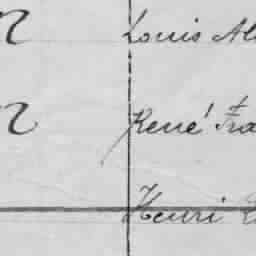 n Louis Al
n René Fra
Henri